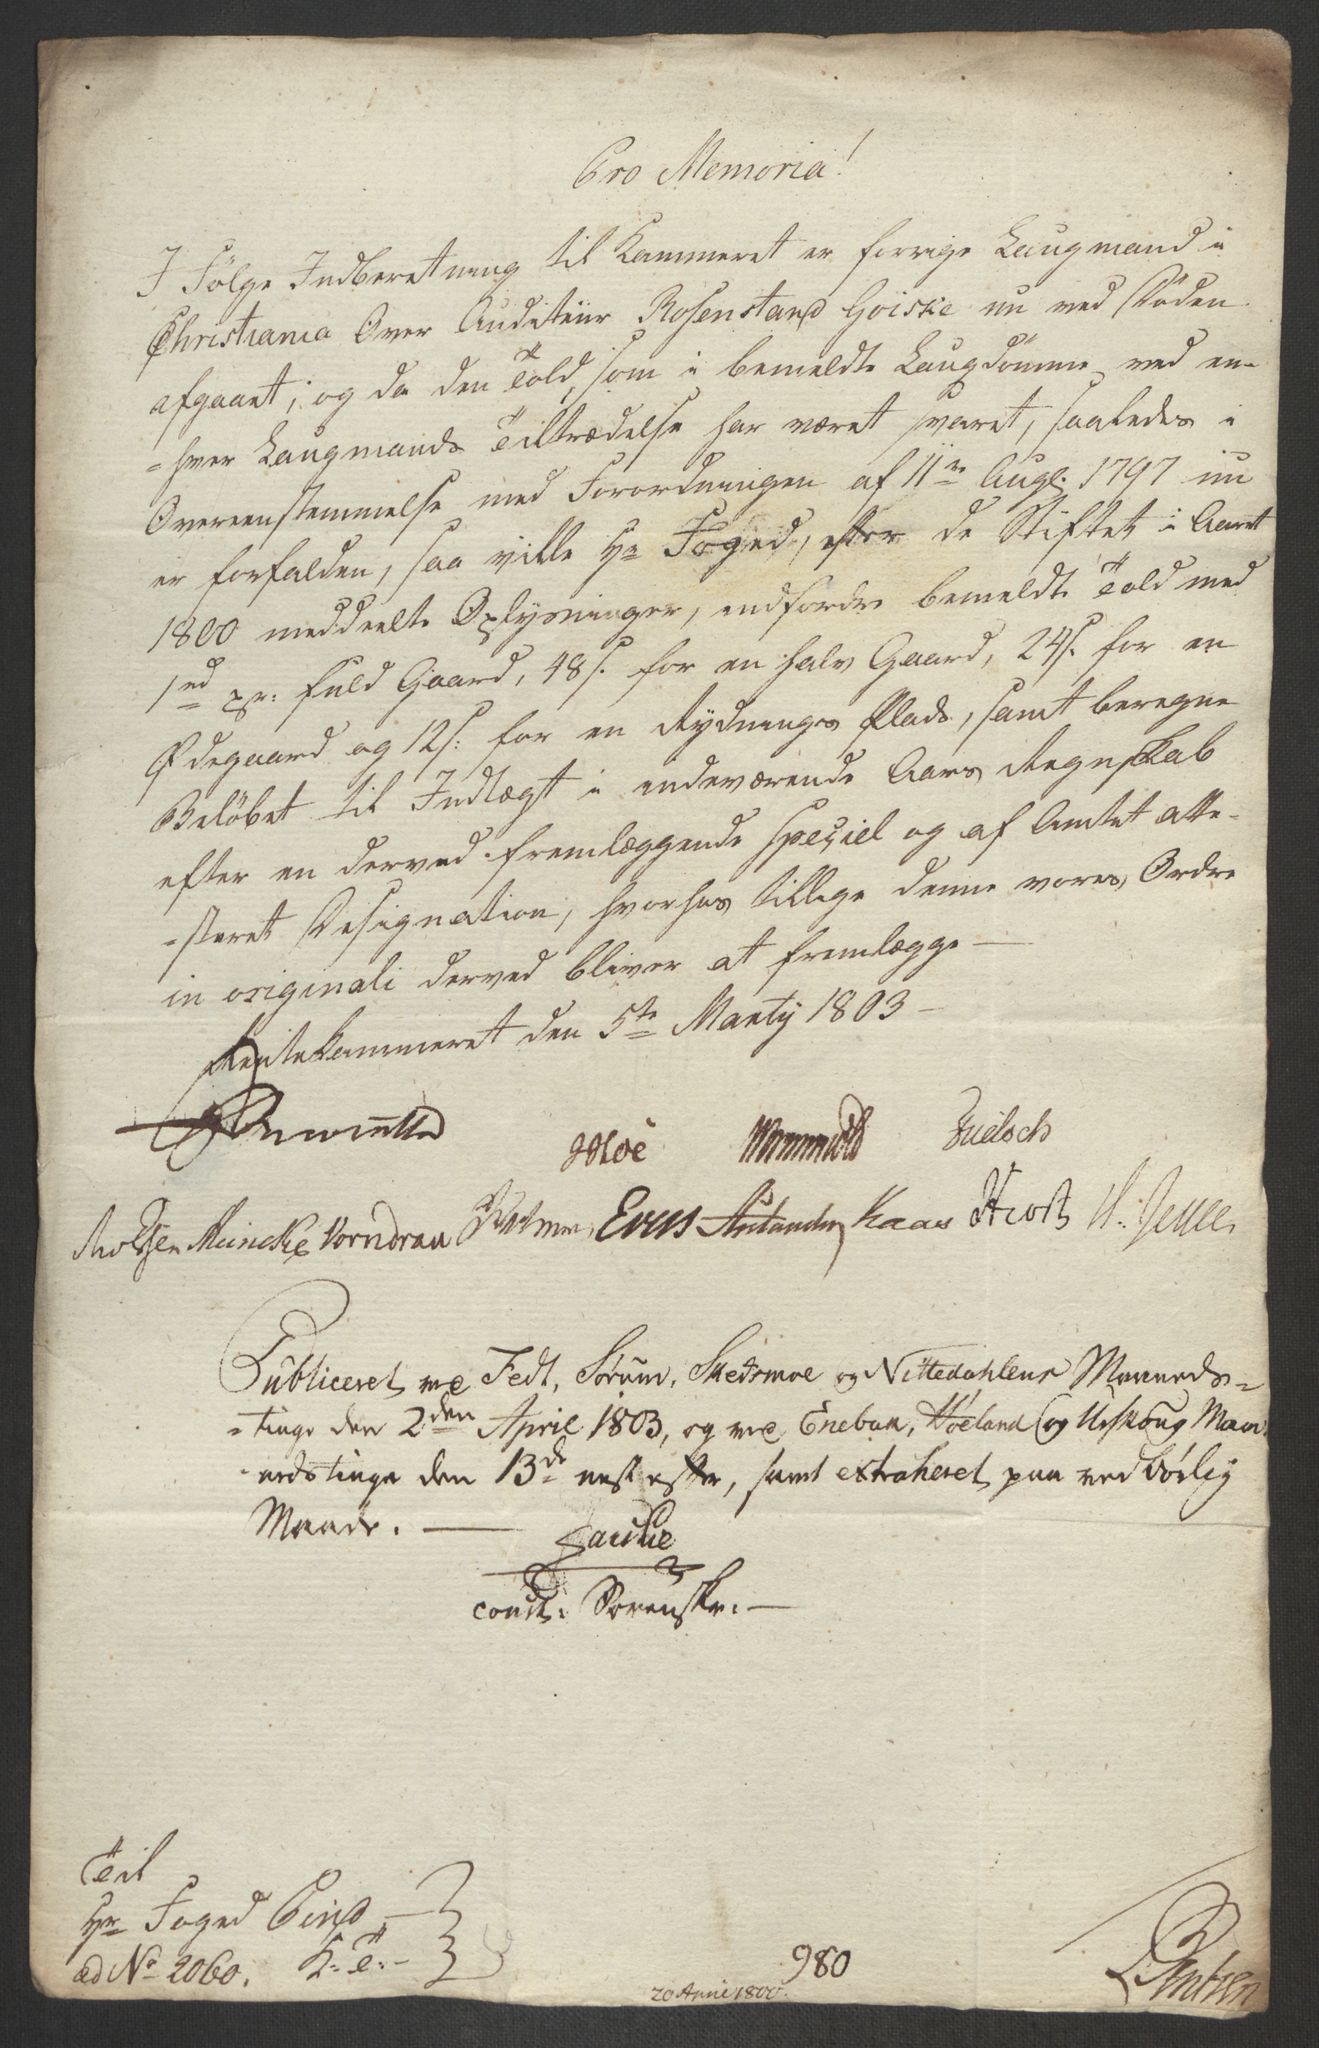 Pro Memoria!
I Følge Indberetning til Kammeret er forrige Laugmand i
Christiania Over Auditeur Rosenstand Goiske nu ved Døden
afgaaet; og da den Told, som i bemeldte Laugdømme ved en-
-hver Laugmands Tiltrædelse har været svaret, saaledes i
Overeenstemmelse med Forordningen af 11te Aug. 1797 nu
er forfalden, saa ville Hr Foged, efter de Stiftet i Aaret
1800 meddeelte Oplysninger, indfordre bemeldte Told med
1rd pr: fuld Gaard, 48 s. for en halv Gaard, 24 s. for en
Ødegaard og 12 s. for en Rydnings Plads, samt beregne
Beløbet til Indtægt i indeværende Aars Regnskab
efter en derved fremlæggende speciel og af Amtet atte-
-steret Designation, hvorhos tillige denne vores Ordre
in originali derved bliver at fremlægge
Rentekammeret den 5te Martij 1803
Moe Wormskiold
Meincke Vorndran Evers Kaas Hiort
Publiceret ved Fedt, Sørum, Skedsmoe og Nittedahlens Maaneds-
-tinge den 2den April 1803, og ved Enebak, Høeland og Urskoug Maa-
-nedstinge den 13de nest efter, samt extraheret paa ved børlig
Maade.
const: Sorenskr.
Til
Hr Foged Bind
K: T:
ad No 2060.
980
20 Anni 1800